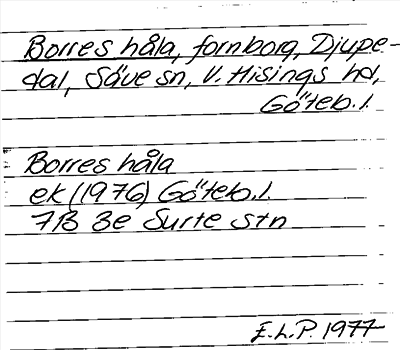 Borres håla, fornborg, Djupe-
dal, Säve sn, V. Hisings hd,
Göteb. l.
Borres håla
ek (1976) Göteb. l.
7B 3e Surte stn
E.L.P. 1977